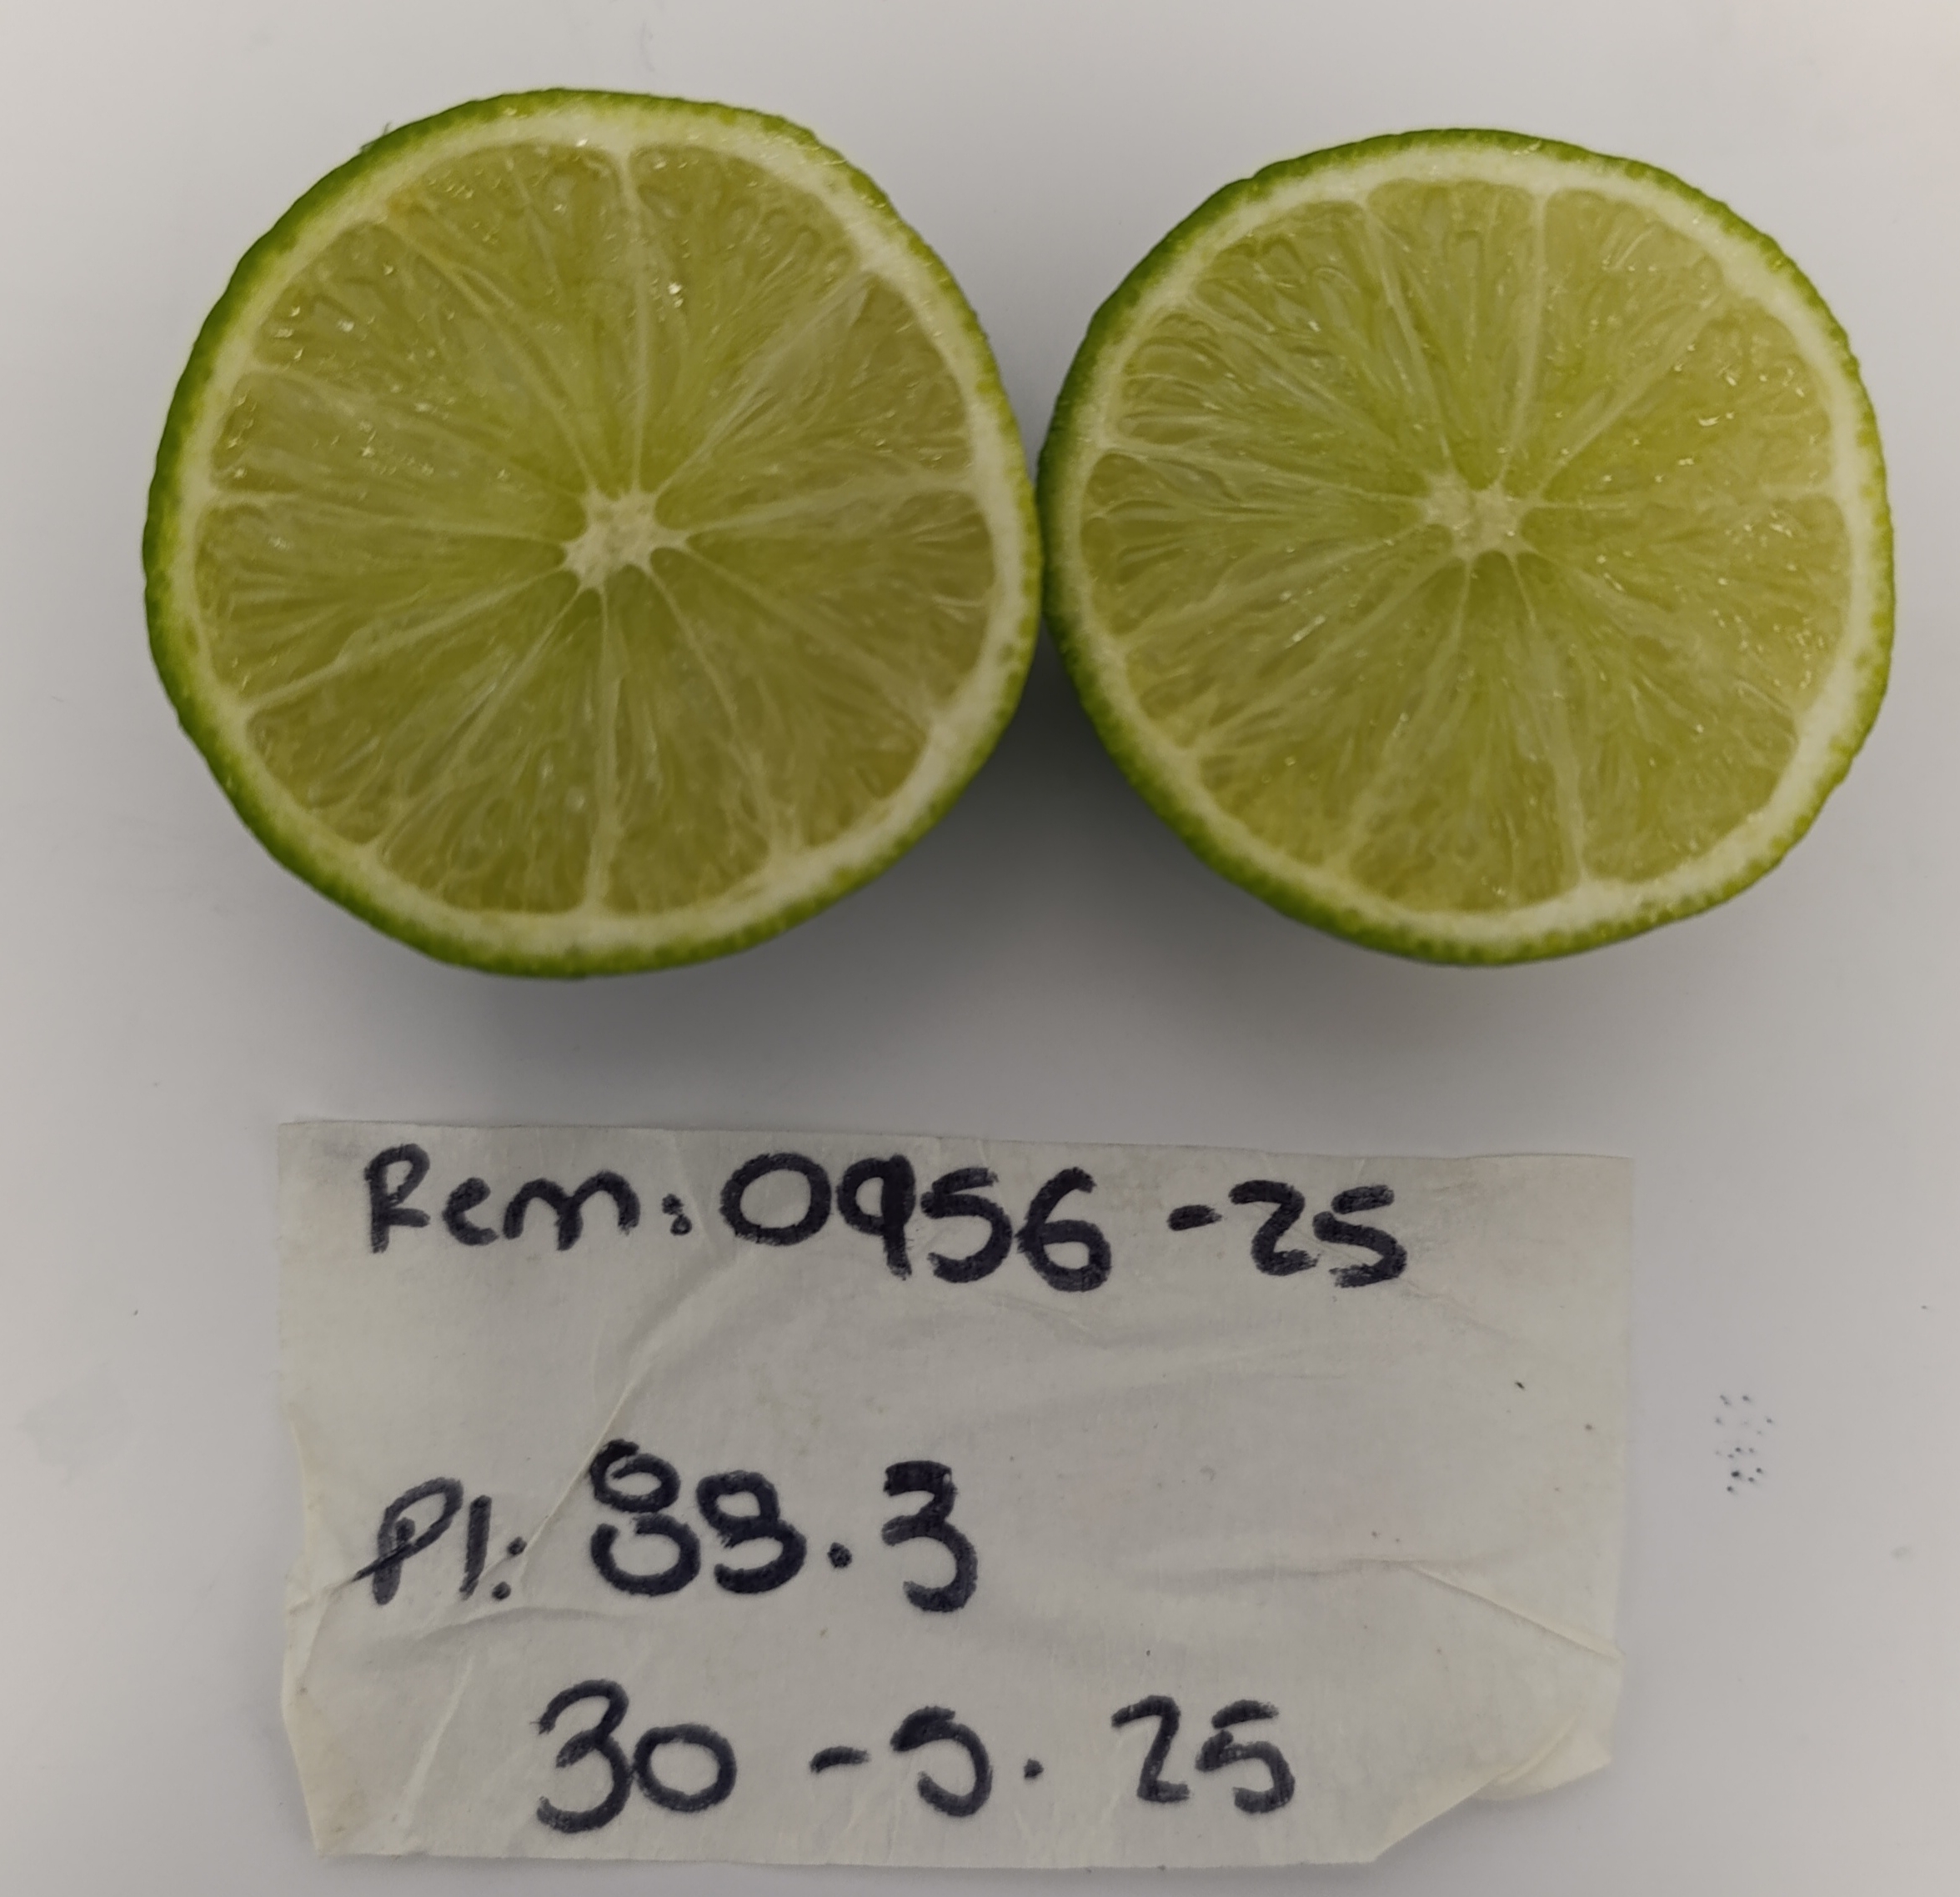 Rem: 0956-25
Pl: 88.3
30-5.25